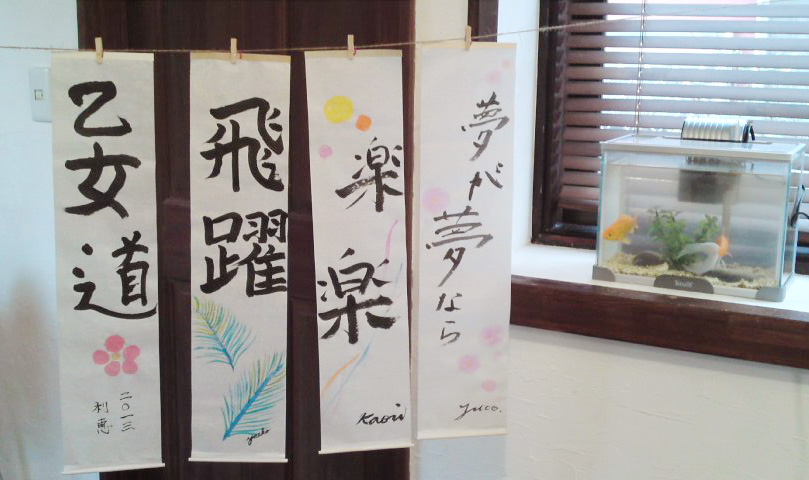 乙女道
二〇一三
利恵
飛躍
楽
楽
Kaori
夢が
夢なら
Yuco.